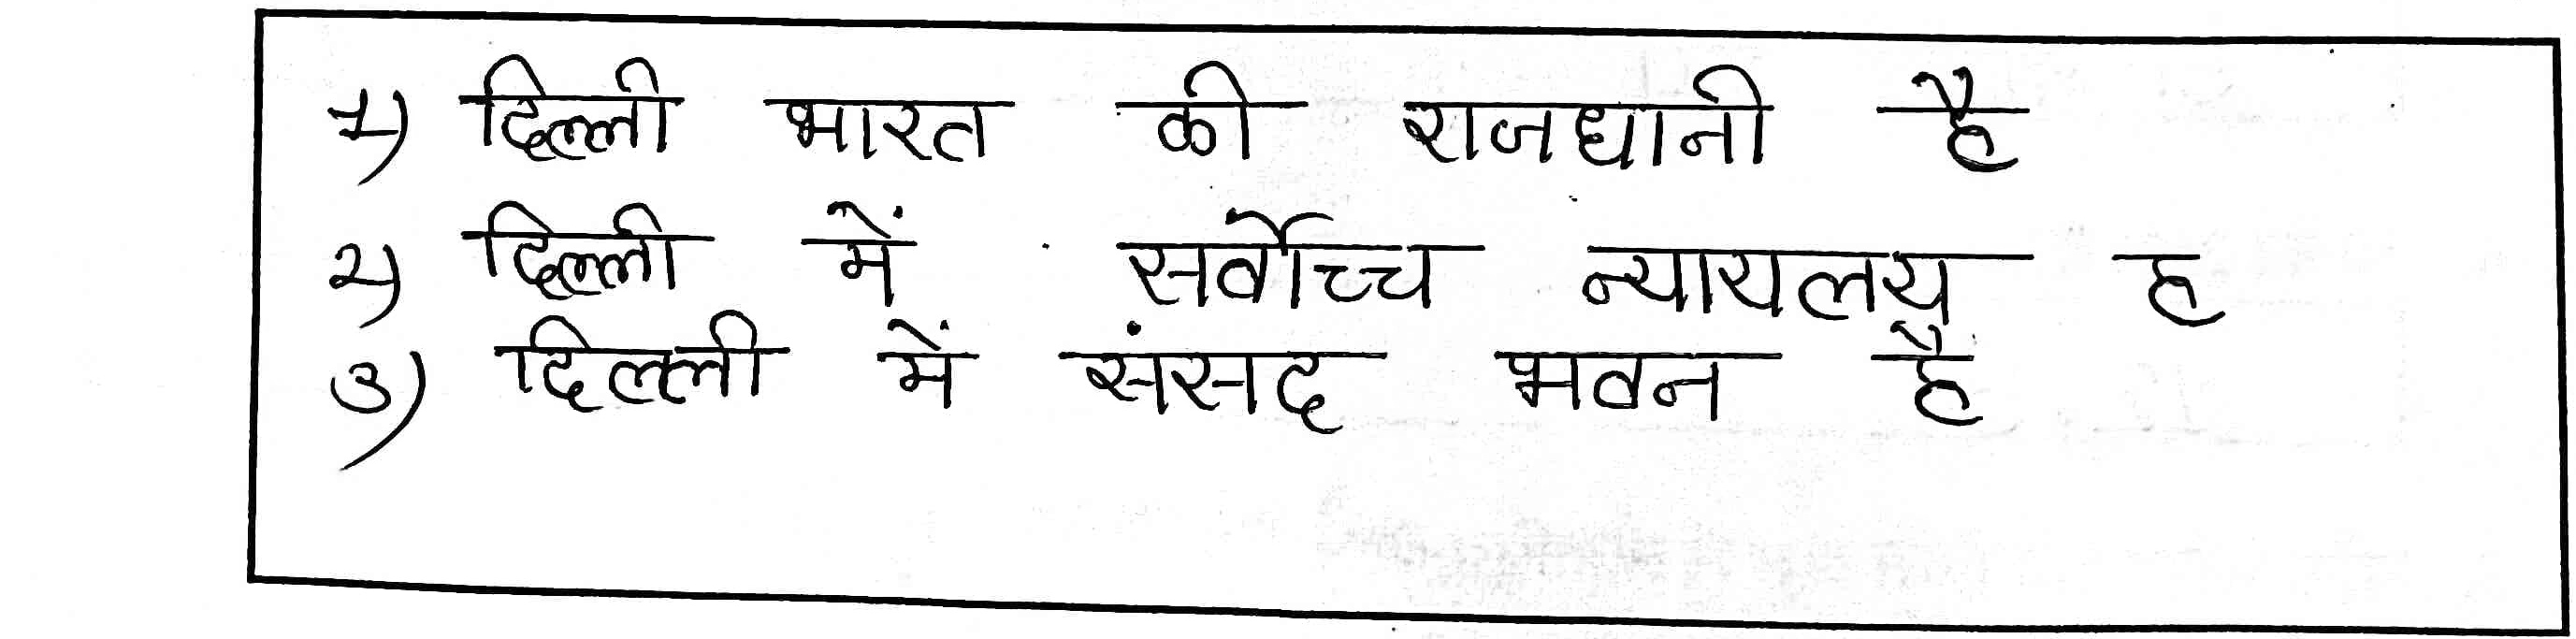 1) दिल्ली भारत की राजधानी है
2) दिल्ली में सर्वोच्च न्यायलय ह
3) दिल्ली में संसद भवन है